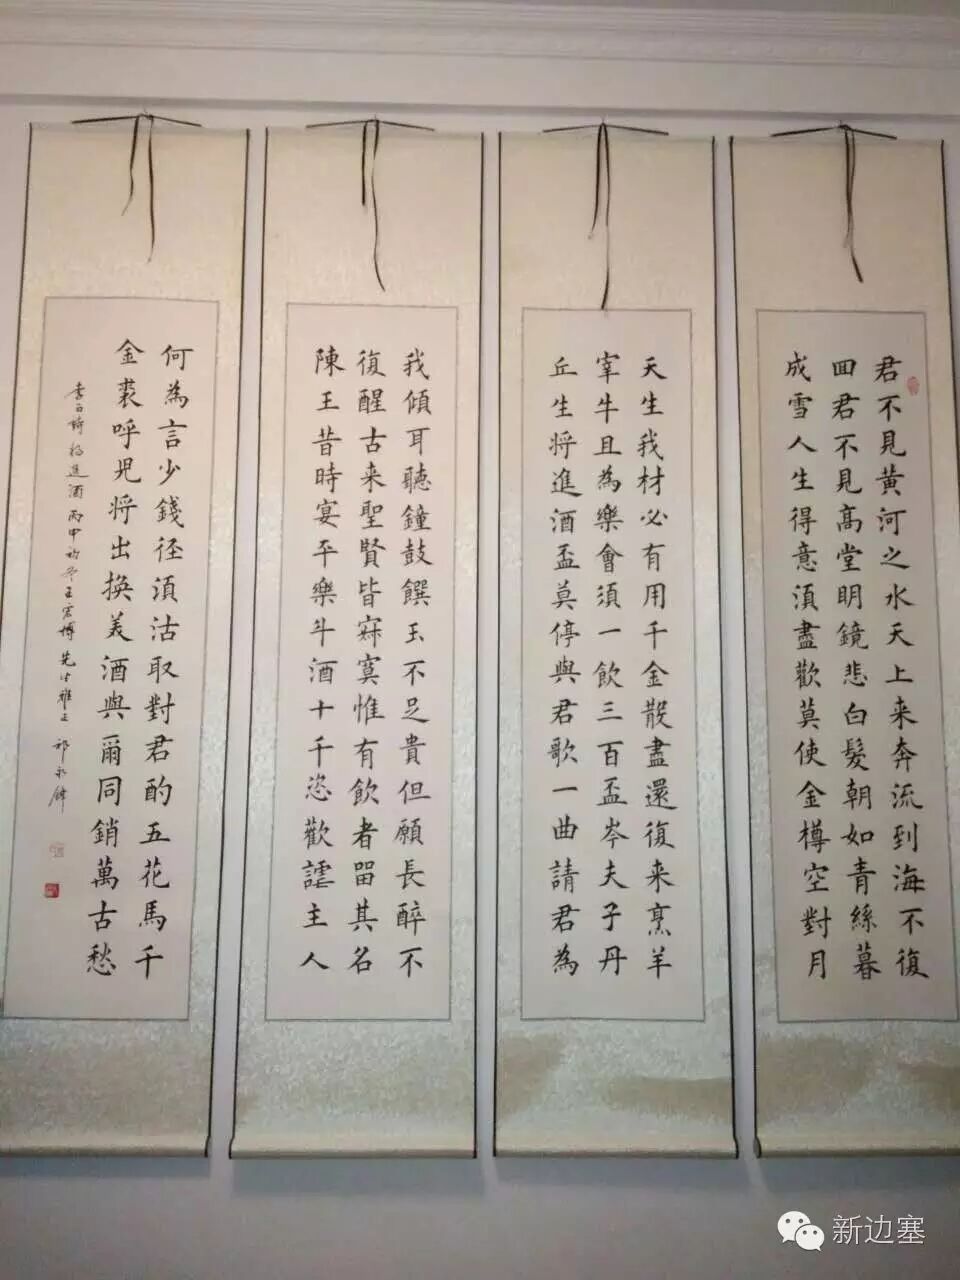 君不見黄河之水天上来奔流到海不復
回君不見高堂明鏡悲白髮朝如青絲暮
成雪人生得意須盡歡莫使金樽空對月
天生我材必有用千金散盡還復来烹羊
宰牛且為樂會須一飲三百盃岑夫子丹
丘生将進酒盃莫停與君歌一曲請君為
我傾耳聽鐘鼓饌玉不足貴但願長醉不
復醒古来聖賢皆寂寞惟有飲者留其名
陳王昔時宴平樂斗酒十千恣歡謔主人
何為言少錢径須沽取對君酌五花馬千
金裘呼児将出換美酒與爾同銷萬古愁
李白詩將進酒丙申初冬王宏博先生雅正祁永
新边塞